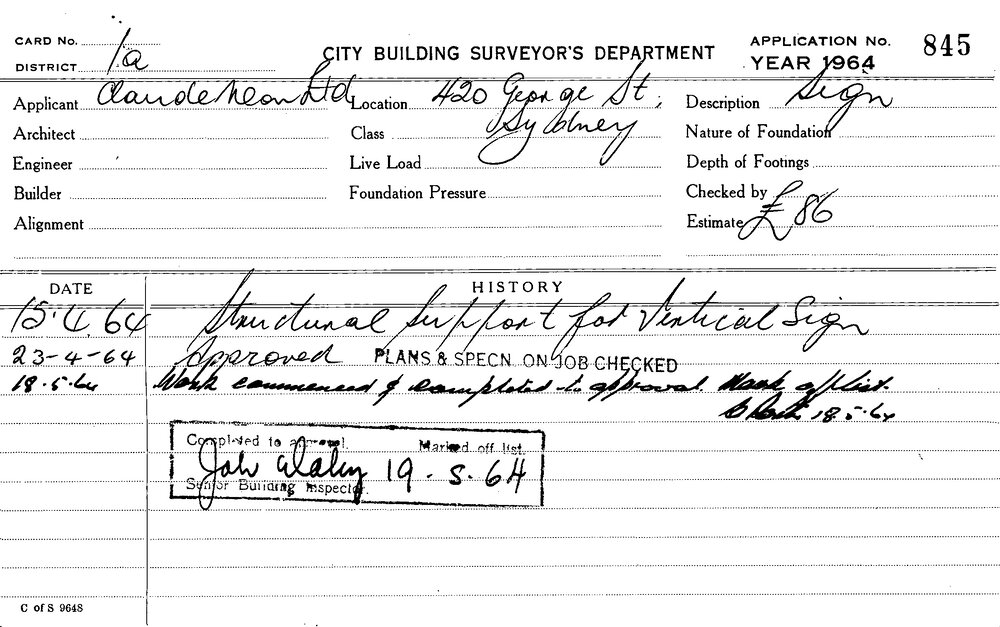 CARD No.
DISTRICT 1a
CITY BUILDING SURVEYOR'S DEPARTMENT
APPLICATION No. 845
YEAR 1964
Applicant Claude Neon Ltd Location 420 George St, Description Sign
Sydney
Architect Class Nature of Foundation
Engineer Live Load Depth of Footings
Builder Foundation Pressure Checked by
Alignment Estimate £86
DATE HISTORY
15.4.64 Structural Support for Vertical Sign
23-4-64 Approved PLANS & SPECN. ON JOB CHECKED
18.5.64 Work commenced & completed to approval. Mark off list.
18.5.64
Completed to approval. Marked off list.
19.5.64
Senior Building Inspector.
C of S 9648